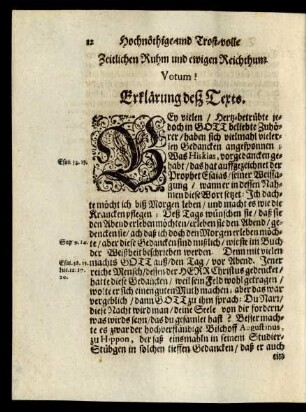 12 Hochnöthige und Trost-volle
Zeitlichen Ruhm und ewigen Reichthum.
Votum!
Erklärung deß Texts.
BEy vielen / Hertz-betrübte je-
doch in GOTT beliebte Zuhö-
rer / haben sich vielmahl vieler-
ley Gedancken angesponnen.
Was Hiskias / vor gedancken ge-
habt / das hat auffgezeichnet der
Prophet Esaias / seiner Weissa-
gung / wann er in dessen Nah-
men diese Wort setzet: Ich dach-
te möcht ich biß Morgen leben / und macht es wie die
Krancken pflegen / Deß Tags wünschen sie / daß sie
den Abend erleben möchten / erleben sie den Abend / ge-
dencken sie / ach daß ich doch den Morgen erleben möch-
te / aber diese Gedancken sind nichtig / wie sie im Buch
der Weißheit beschrieben werden. Denn mit vielen
machts GOTT auß den Tag / vor Abend. Jener
reiche Mensch / dessen der HERR Christus gedencket /
hatte diese Gedancken / weil sein Feld wohl getragen /
wolte er sich einen guten Muth machen / aber das war
vergeblich / dann GOTT zu ihm sprach: Du Narr /
diese Nacht wird man / deine Seele von dir fordern /
was wirds seyn / das du gesamlet hast? Besser mach-
te es zwar der hochverständige Bischoff Augustinus,
zu Hippon, der saß einsmahln in seinem Studier-
Stübgen in solchen tieffen Gedancken / daß er auch
Esai. 38. 13.
Sap. 9. 14.
Esai. 38. 12.
Luc. 12. 17.
20.